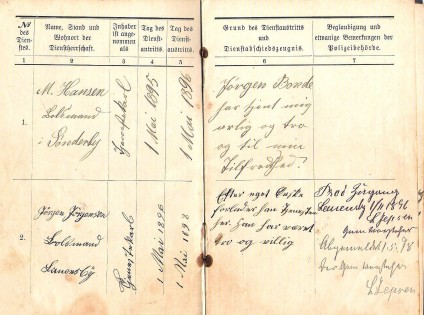 № des Dienstes.
Name, Stand und Wohnort der Dienstherrschaft.
Inhaber ist angenommen als
Tag des Dienstantritts.
Tag des Dienstaustritts.
Grund des Dienstaustritts und Dienstabschiedszeugnis.
Beglaubigung und etwaige Bemerkungen der Polizeibehörde.
1
2
3
4
5
6
7
1.
M. Hansen
Boldmand
i Sönderby
Tjenestekarl
1 Mai 1895
1 Mai 1896
Jörgen Bonde
har tjent mig
ærlig og tro
og til min
Tilfredshed.
2.
Jörgen Jörgensen
Boldmand
Tjenestekarl
1 Mai 1896
1 Mai 1898
Efter eget Önske
forlader han Tjenesten
her. Han har været
tro og villig
1/5 1896
Jepsen
Gemeindevorsteher
Abgemeldet 1.5.98
Der Gemeindevorsteher
Jepsen